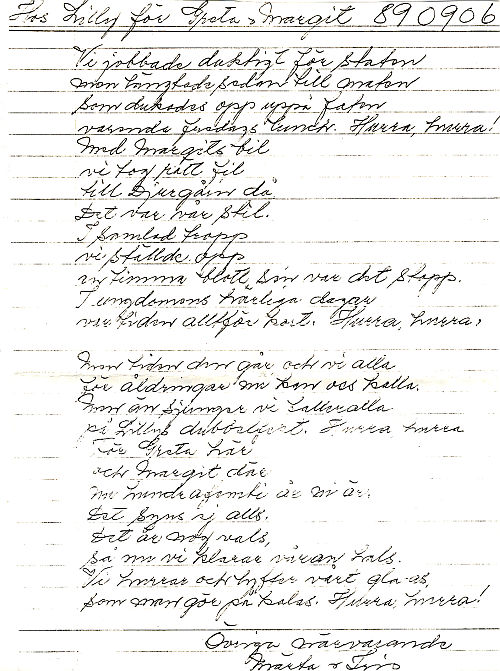 Hos Lilly för Greta & Margit 890906
Vi jobbade duktigt för staten
men längtade sedan till maten
som dukades opp uppå faten
varenda fredags lunch. Hurra, hurra!
Med Margits bil
vi tog rätt fil
till Djurgår'n då
Det var vår stil.
I samlad tropp
vi ställde opp
en timma blott, sen var det stopp.
I ungdomens härliga dagar
var tiden alltför kort. Hurra, hurra,
Men tiden den går, och vi alla
för åldringar nu kan oss kalla.
Men än sjunger vi lalleralla
på Lillys dubbelfest. Hurra hurra
För Greta här
och Margit där
nu hundrafemti år ni är.
Det syns ej alls.
Det är nog vals,
så nu vi klarar våran hals.
Vi hurrar och lyfter vårt gla-as,
som man gör på kalas. Hurra, hurra!
Övriga närvarande
Märta & Siris